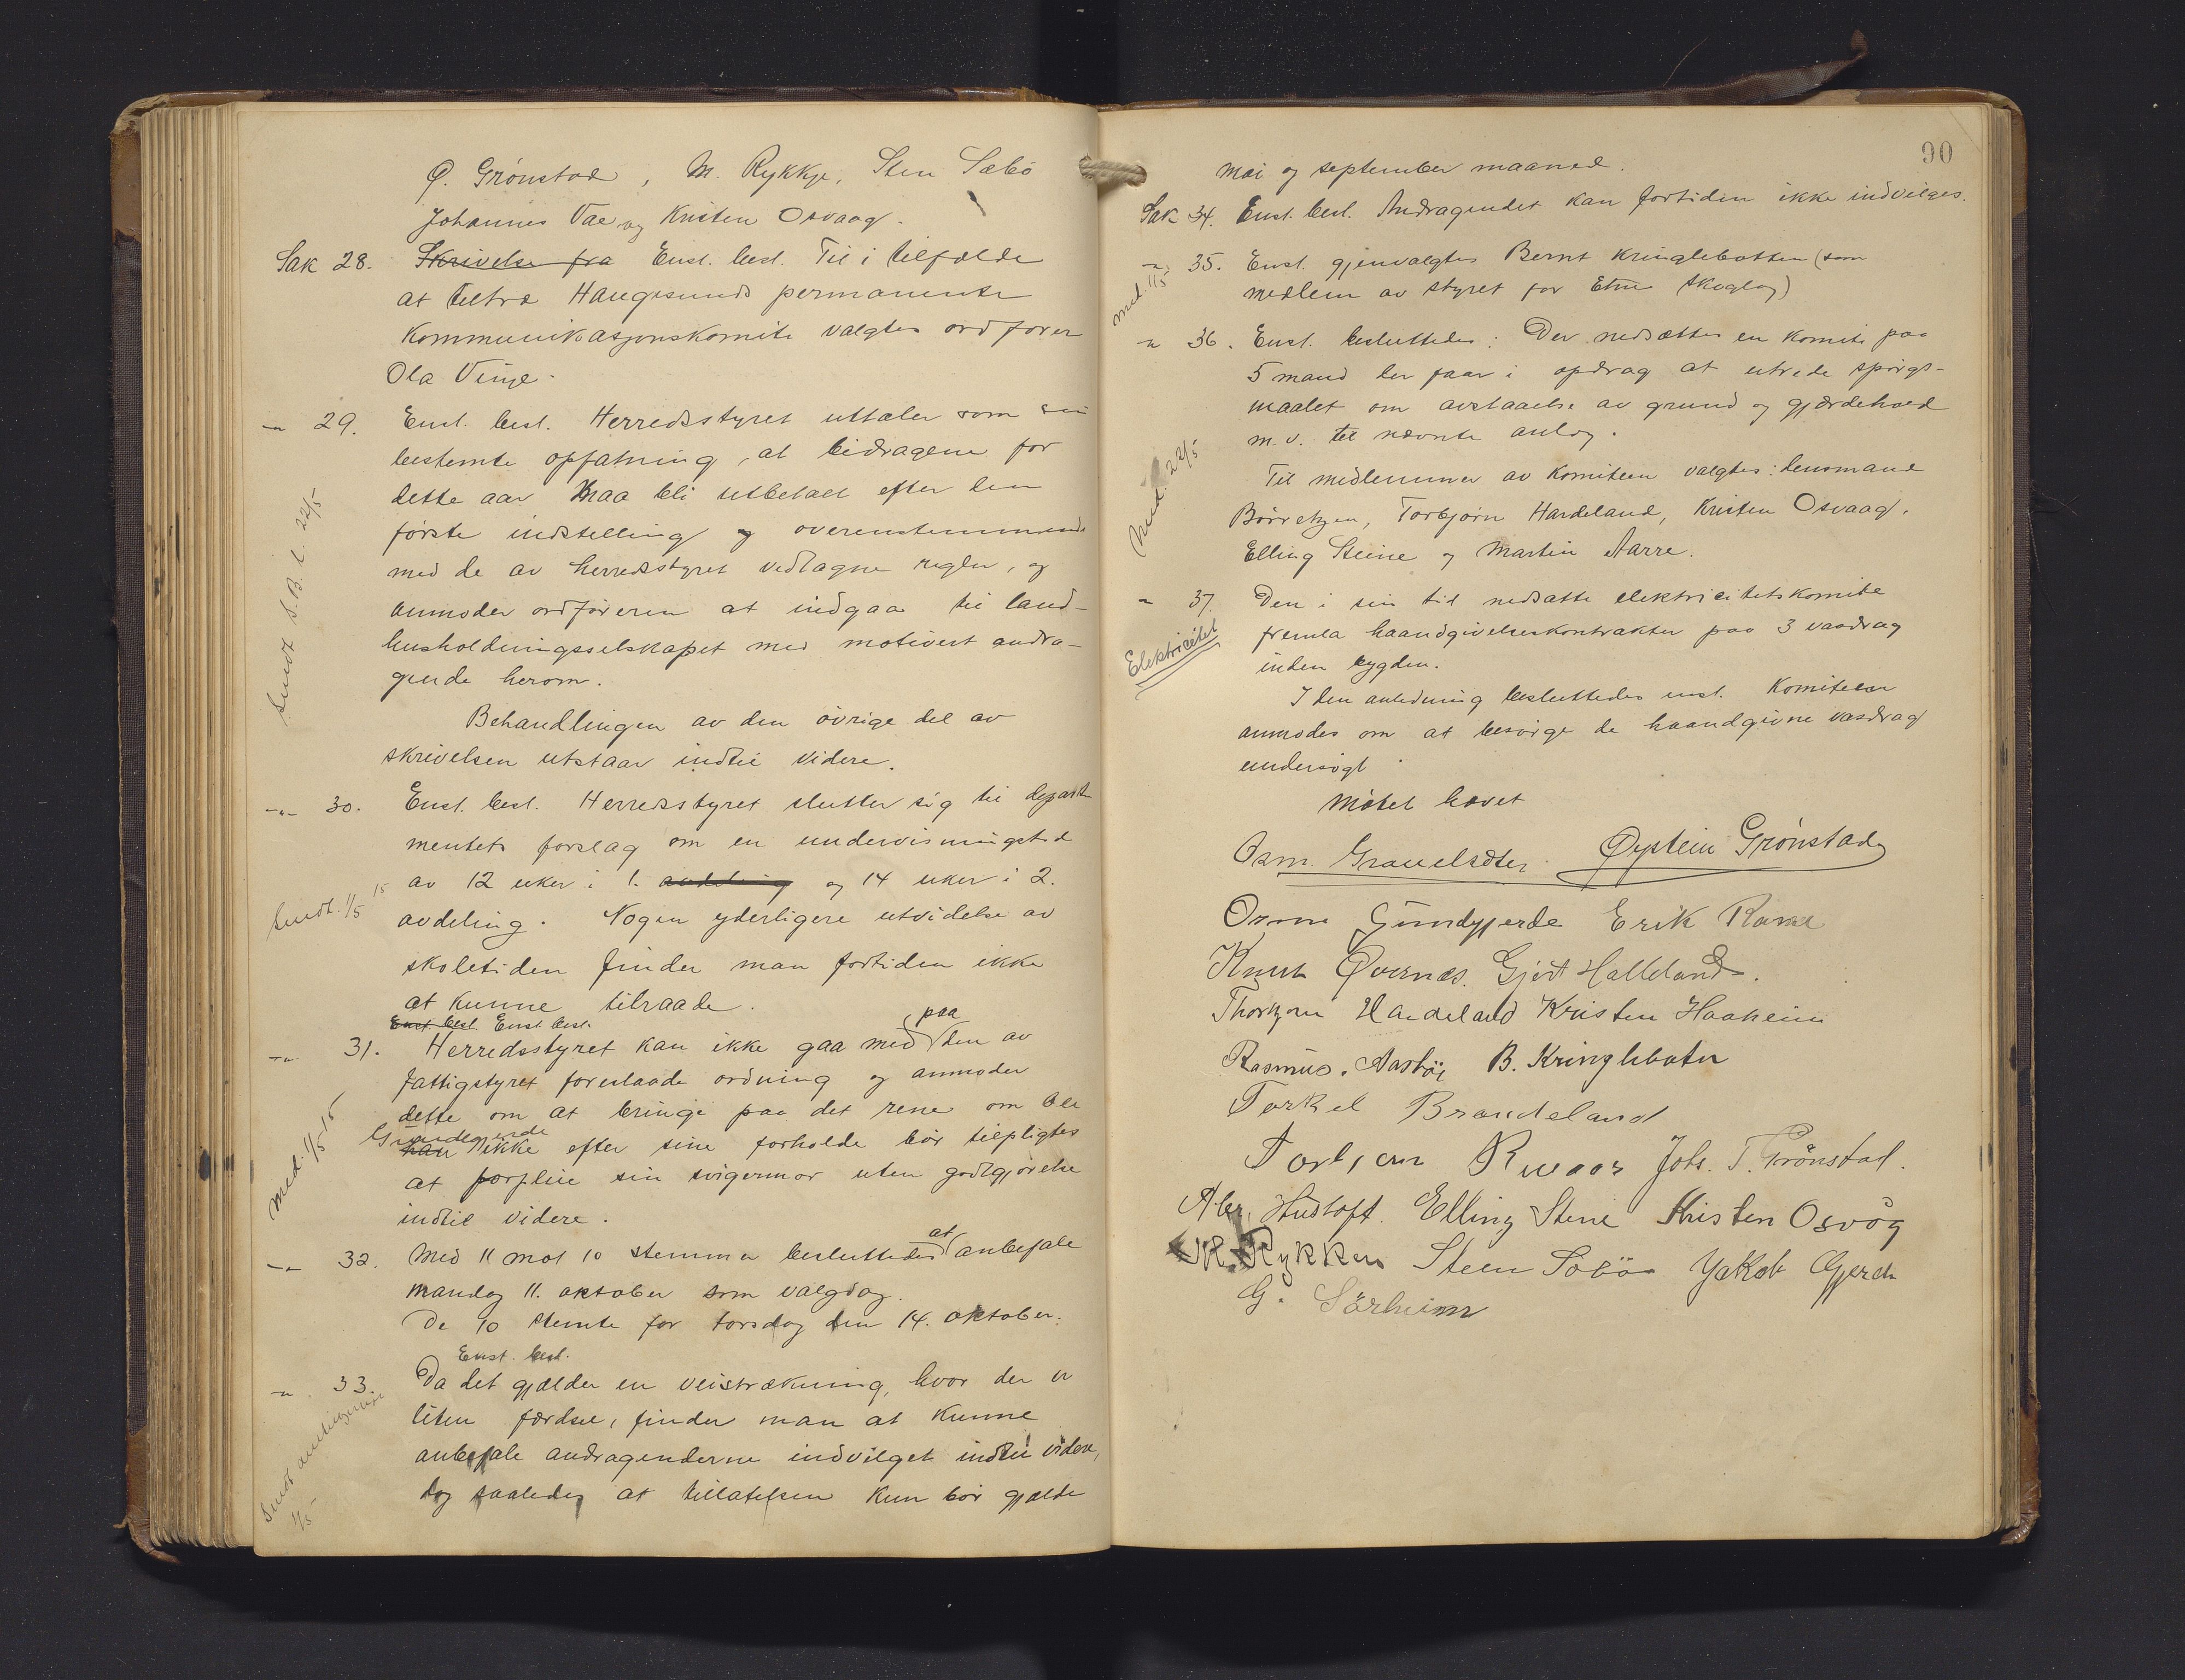 Ø. Grönstad, M. Rykkje, Sten Sæbö
Johannes Vae og Kristen Osvaag.
Sak 28. Skrivelse fra Enst. besl. Til i tilfælde
at tiltræ Haugesunds permanente
kommunikasjonskomite valgtes ordförer
Ola Vinje.
-"- 29. Enst. besl. Herredsstyret uttaler som sin
bestemte opfatning, at bidragene for
dette aar maa bli utbetalt efter den
förste indstilling og overenstemmende
med de av herredsstyret vedtagne regler, og
anmoder ordföreren at indgaa til land-
husholdningsselskapet med motivert andra-
gende herom.
Sendt S.B.l. 22/5
Behandlingen av den övrige del av
skrivelsen utstaar indtil videre.
-"- 30. Enst. besl. Herredsstyret slutter sig til departe
mentets forslag om en undervisningstid
av 12 uker i 1. avdeling og 14 uker i 2.
Sendt. 1/5 15
avdeling. Nogen yderligere utvidelse av
skoletiden finder man fortiden ikke
at kunne tilraade.
Enst. besl. Enst besl.
-"- 31. Herredsstyret kan ikke gaa med paa den av
fattigstyret foreslaade ordning og anmoder
dette om at bringe paa det rene om Ole
Grindegjerde
han ikke efter sine forholde bör tilpligtes
at forpleie sin svigermor uten godtgjörelse
indtil videre.
Med. 1/5 15
-"- 32. Med 11 mot 10 stemmer besluttedes at anbefale
mandag 11. oktober som valgdag.
De 10 stemte for torsdag den 14. oktober.
Enst. besl.
-"- 33. Da det gjælder en veistrækning, hvor der er
liten færdsel, finder man at kunne
anbefale andragenderne indvilget indtil videre,
dog saaledes at tillatelsen kun bör gjælde
Sendt 1/5
90
mai og september maaned.
Sak 34. Enst. besl. Andragendet kan fortiden ikke indvilges.
-"- 35. Enst. gjenvalgtes Bernt Kringlebotten (som
medlem av styret for Etne skoglag)
med. 1/5
-"- 36. Enst. besluttedes: Der nedsættes en komite paa
5 mand der faar i opdrag at utrede spörgs-
maalet om avstaaelse av grund og gjærdehold
m.v. til nævnte anlæg.
Med. 22/5
Til medlemmer av komiteen valgtes: lensmand
Börretzen, Torbjörn Hardeland, Kristen Osvaag,
Elling Steine og Martin Aarre.
-"- 37. Den i sin tid nedsatte elektricitetskomite
fremla haandgivelseskontrakter paa 3 vasdrag
inden bygden.
Elektricitet
I den anledning besluttedes enst. Komiteen
anmodes om at besörge de haandgivne vasdrag
undersögt.
Mötet hævet
Osm. Öystein Grönstad
Osmu Grindgjerde Erik Ramel
Knut Øvernes. Gjert Halleland.
Thorbjørn Hardeland Kristen Haaheim
Rasmus. Aasböe B. Kringlebotn
Torkel Brandeland
Torbjørn Joh. T. Grönstad.
Hustoft. Elling Stene Kristen Osvåg
M. Rykken Steen Sæböe Jakob Gjerde
G. Sörheim